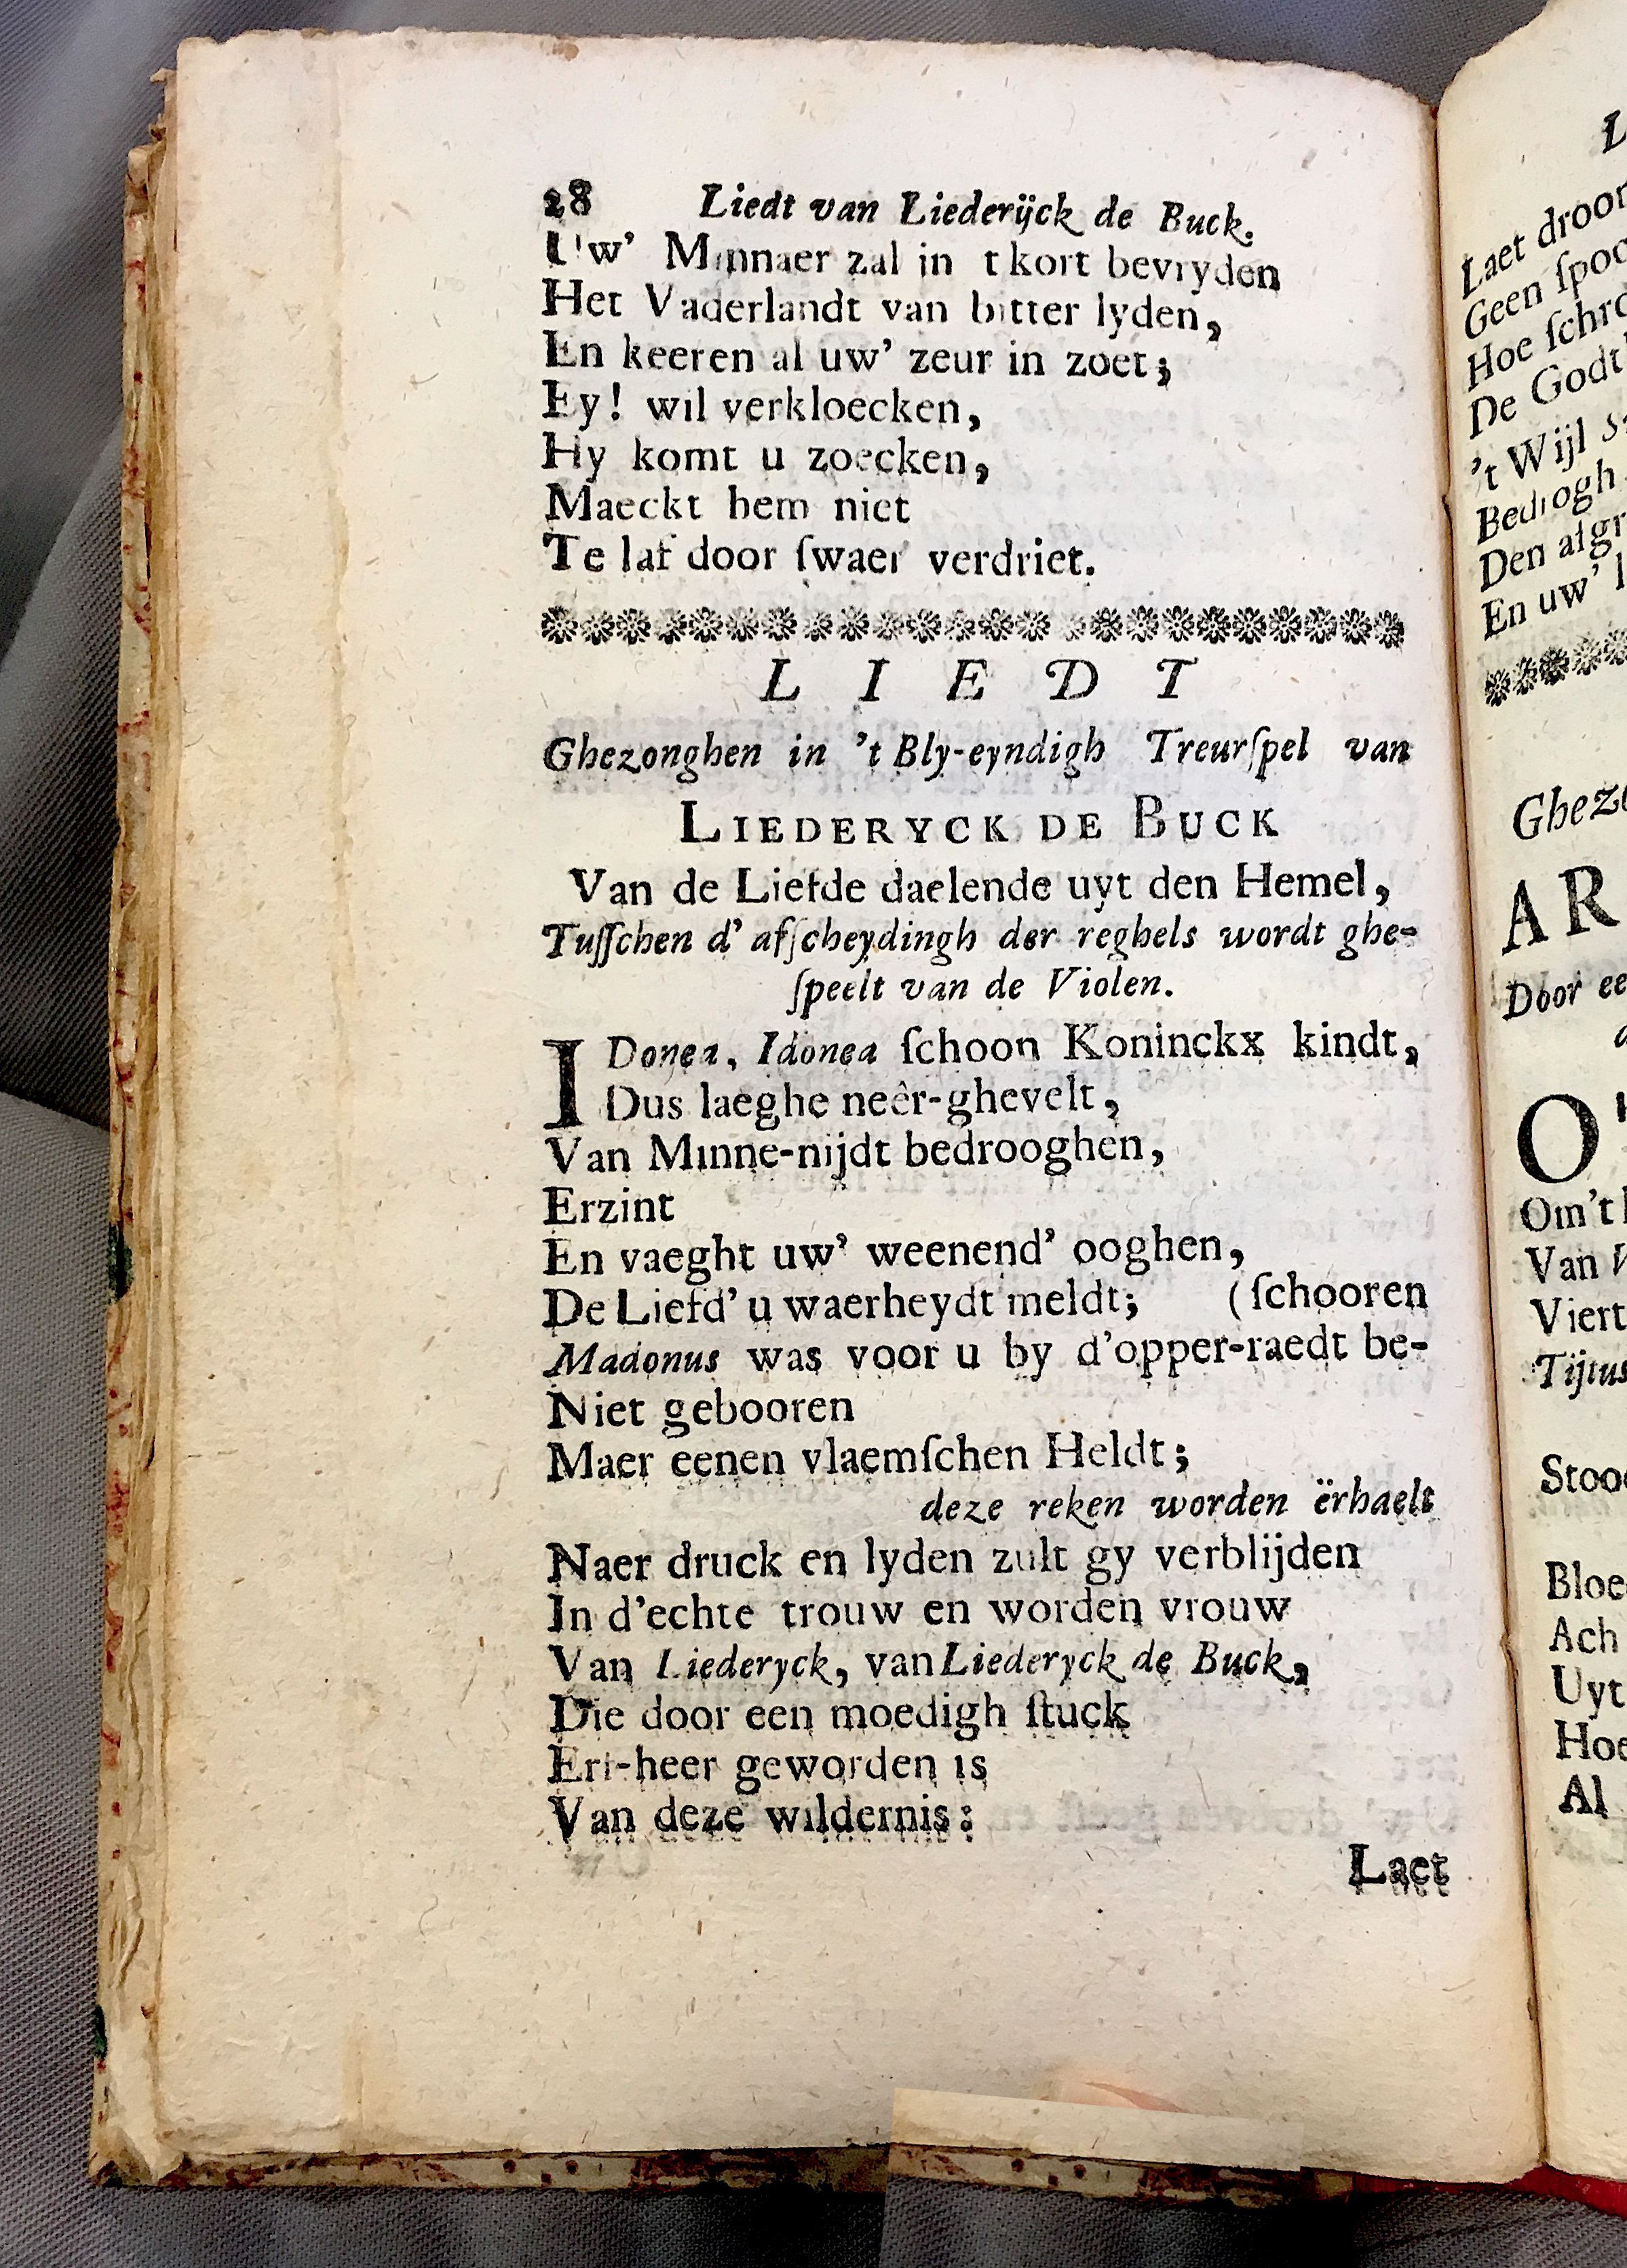 28 Liedt van Liederijck de Buck.
Uw' Minnaer zal in t kort bevryden
Het Vaderlandt van bitter lyden,
En keeren al uw' zeur in zoet;
Ey! wil verkloecken,
Hy komt u zoecken,
Maeckt hem niet
Te laf door ſwaer verdriet.
L I E D T
Ghezonghen in 't Bly-eyndigh Treurſpel van
LIEDERYCK DE BUCK
Van de Liefde daelende uyt den Hemel,
Tuſſchen d' afſcheydingh der reghels wordt ghe-
ſpeelt van de Violen.
IDonea, Idonea ſchoon Koninckx kindt,
Dus laeghe neêr-ghevelt,
Van Minne-nijdt bedrooghen,
Erzint
En vaeght uw' weenend' ooghen,
De Liefd' u waerheydt meldt; (ſchooren
Madonus was voor u by d'opper-raedt be-
Niet gebooren
Maer eenen vlaemſchen Heldt;
deze reken worden ërhaelt
Naer druck en lyden zult gy verblijden
In d'echte trouw en worden vrouw
Van Liederyck, van Liederyck de Buck,
Die door een moedigh ſtuck
Erf-heer geworden is
Van deze wildernis:
Laet
L
Laet
Geen
Hoe
De
't Wijl
Bedrogh
Den
En uw'
A R
Door
O'
Om't
Van
Viert
Ach
Uyt
Al